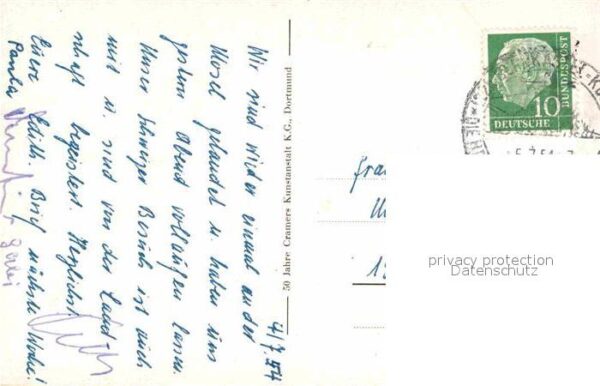 4/7.54
Wir sind wieder einmal an der
Mosel gelandet u. haben uns
gestern Abend vollaufen lassen.
Unser Schweizer Besuch ist auch
mit u. sind von der Land-
schaft begeistert. Herzlichst
Eure Edith. Brief nächste Woche!
Paula
50 Jahre Cramers Kunstanstalt K.G., Dortmund
DEUTSCHE
BUNDESPOST
10
privacy protection
Datenschutz